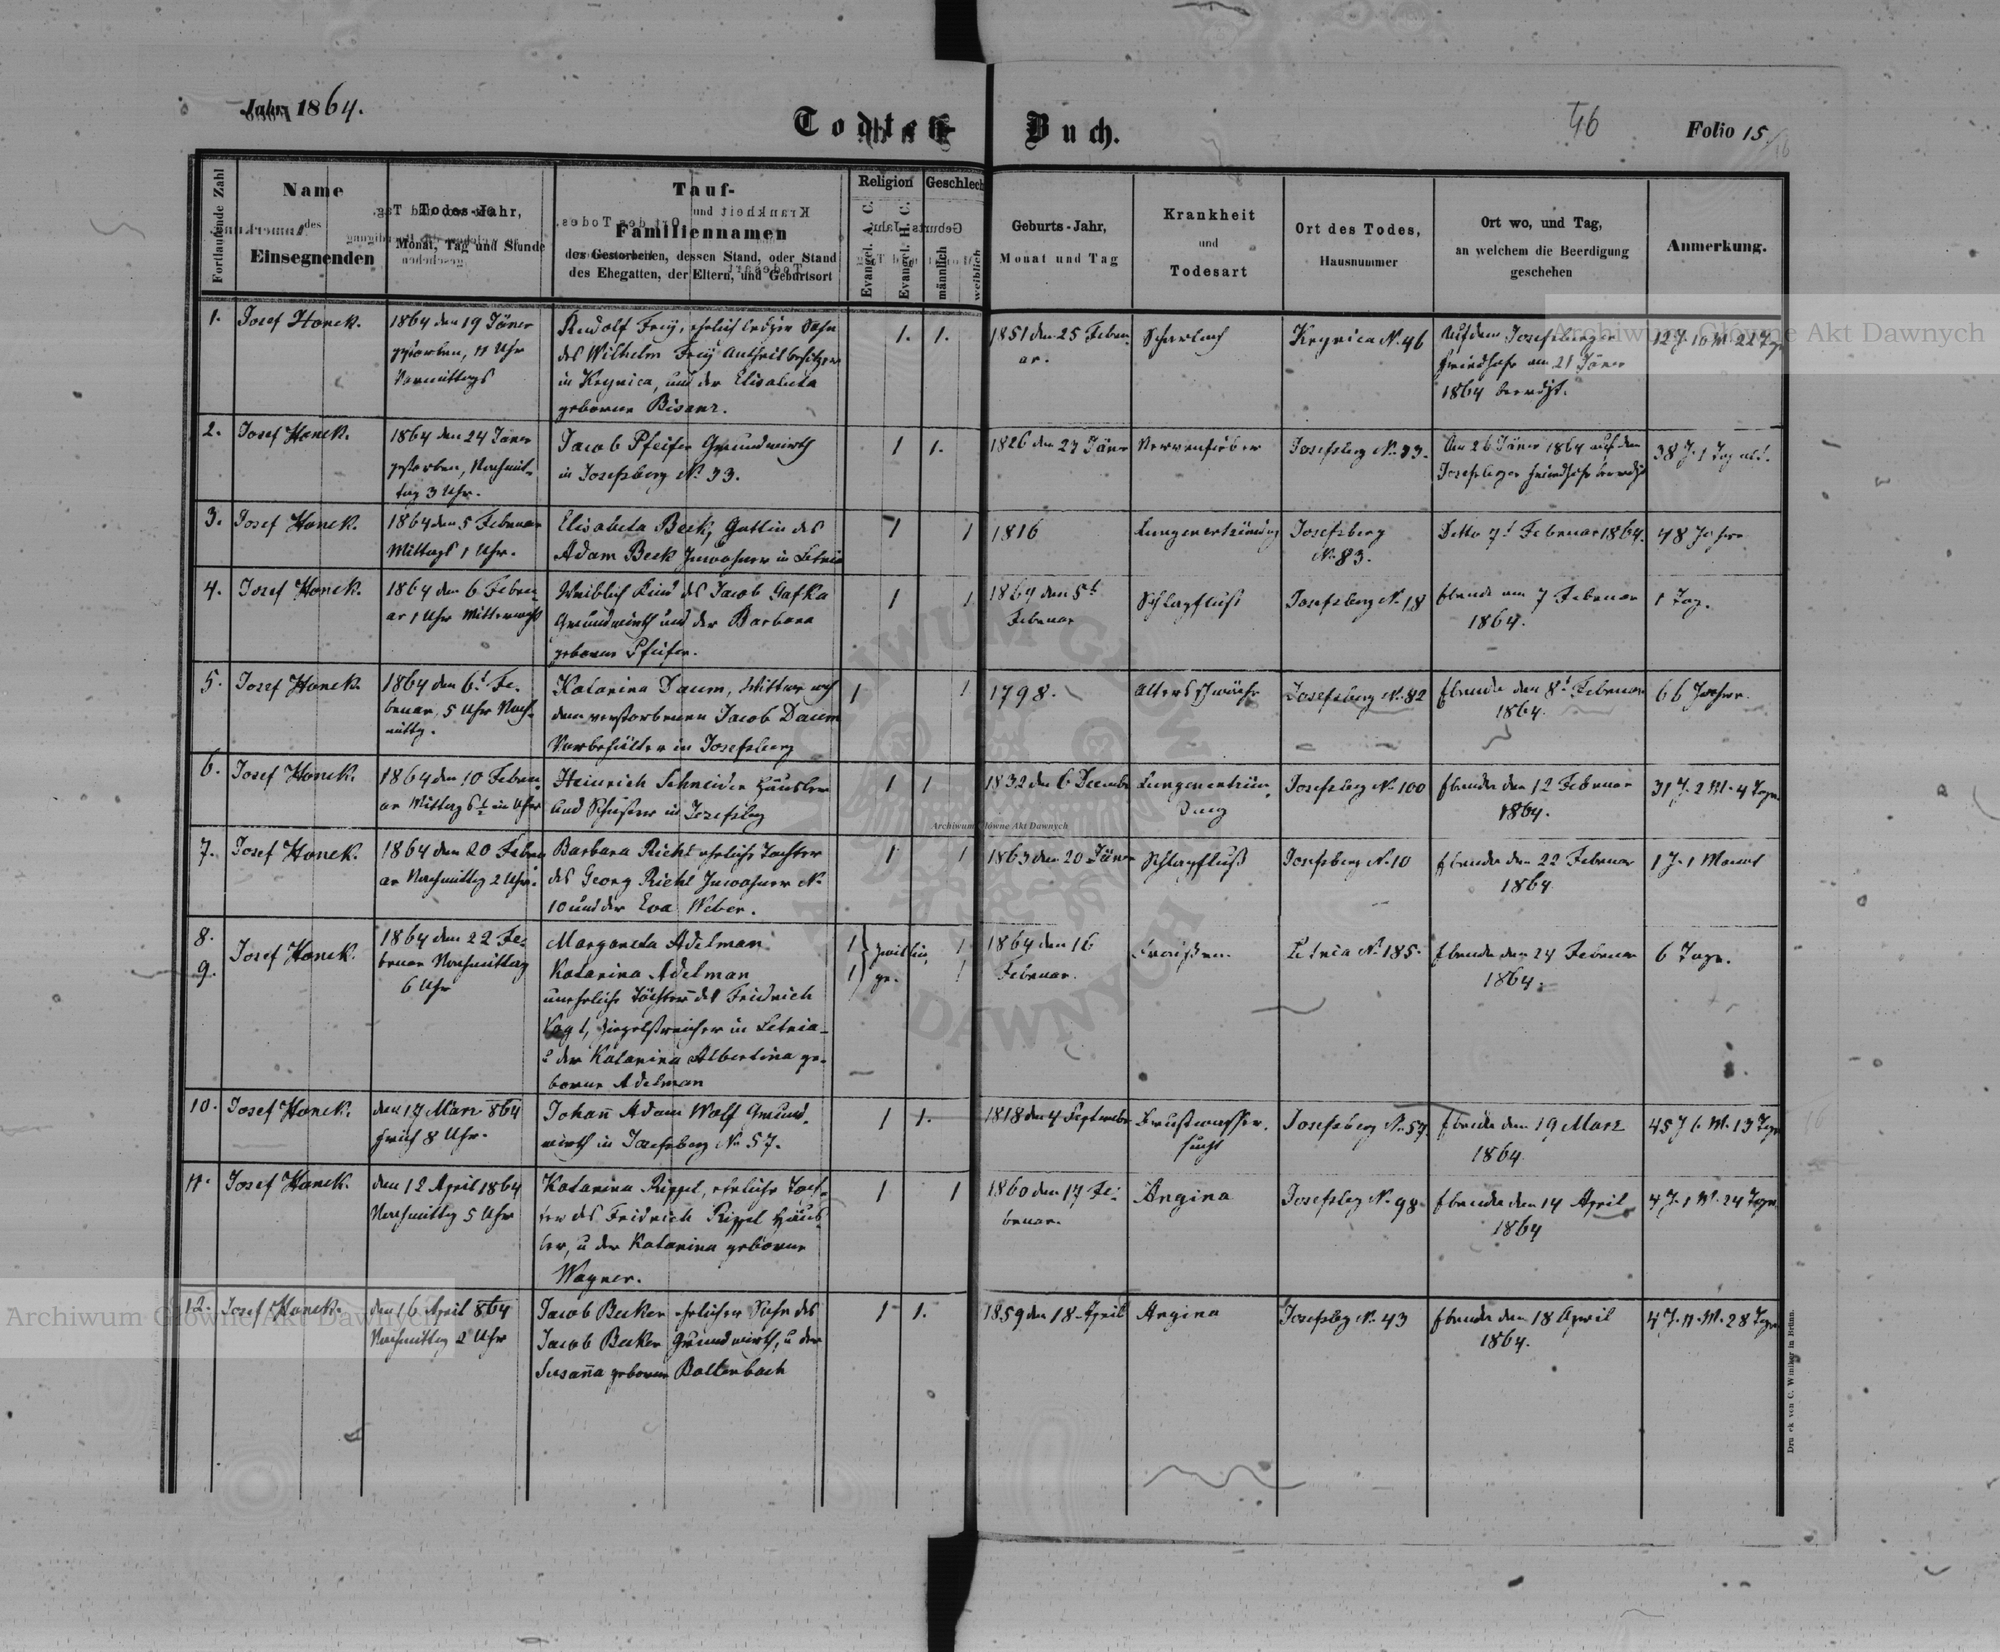 Jahr 1864.
Todten-Buch.
46
Folio 15.
16
Fortlaufende Zahl
Name
des
Einsegnenden
Todes-Jahr,
Monat, Tag und Stunde
Tauf-
Familiennamen
des Gestorbenen, dessen Stand, oder Stand
des Ehegatten, der Eltern, und Geburtsort
Religion
Evangel. A. C.
Evangel. H. C.
Geschlecht
männlich
weiblich
Geburts-Jahr,
Monat und Tag
Krankheit
und
Todesart
Ort des Todes,
Hausnummer
Ort wo, und Tag,
an welchem die Beerdigung
geschehen
Anmerkung.
1. Josef Honek.
1864 den 19 Jäner
gestorben, 11 Uhr
Vormittags
Rudolf Frey, ehelich lediger Sohn
des Wilhelm Frey Antheilbesitzer
in Krynica, und der Elisabeta
geborene Bisanz.
1. 1.
1851 den 25 Febru-
ar.
Scharlach
Krynica N. 46
Auf dem Josefsberger
Friedhofe am 21 Jäner
1864 beerdigt.
12 J. 10 M. 22 Tg.
2. Josef Honek.
1864 den 24 Jäner
gestorben, Nachmit-
tag 3 Uhr.
Jacob Pfeifer Grundwirth
in Josefsberg N. 33.
1 1.
1826 den 23 Jäner
Nervenfieber
Josefsberg N. 33.
Am 26 Jäner 1864 auf dem
Josefsberger Friedhofe beerdigt
38 J. 1 Tag alt.
3. Josef Honek.
1864 den 5 Februar
Mittags 1 Uhr.
Elisabeta Beck, Gattin des
Adam Beck Inwohner in Letnia
1 1
1816
Lungenentzündung
Josefsberg
N. 83.
Detto 7t Februar 1864.
48 Jahre
4. Josef Honek.
1864 den 6 Febru-
ar 1 Uhr Mitternacht
Weiblich Kind des Jacob Gafka
Grundwirth und der Barbara
geborene Pfeifer.
1 1
1864 den 5t
Februar
Schlagfluß
Josefsberg N. 18
Ebenda am 7 Februar
1864.
1 Tag.
5. Josef Honek.
1864 den 6t Fe-
bruar, 5 Uhr Nach-
mittg.
Katarina Daum, Wittwe nach
dem verstorbenen Jacob Daum
Vorbehälter in Josefsberg
1 1
1798.
Altersschwäche
Josefsberg N. 82
Ebenda den 8t Februar
1864.
66 Jahre.
6. Josef Honek.
1864 den 10 Febru-
ar Mittag 6t ein Uhr
Heinrich Schneider Häusler
und Schuster in Josefsbg
1 1
1832 den 6 Decembr
Lungenentzün-
dung
Josefsbg N. 100
Ebenda den 12 Februar
1864.
31 J. 2 M. 4 Tage
7. Josef Honek.
1864 den 20 Febru-
ar Nachmittag 2 Uhr.
Barbara Riehl eheliche Tochter
des Georg Riehl Inwohner N.
10 und der Eva Weber.
1 1
1863 den 20 Jäner
Schlagfluß
Josefsberg N. 10
Ebenda den 22 Februar
1864
1 J. 1 Monat
8.
9.
Josef Honek.
1864 den 22 Fe-
bruar Nachmittag
6 Uhr
Margareta Adelman
Katarina Adelman
uneheliche Töchter des Fridrich
Vogt, Ziegelstreicher in Letnia
u der Katarina Albertina ge-
borene Adelman
1 } Zwillin- 1
1 } ge. 1
1864 den 16
Februar.
Fraißen.
Letnia N. 185.
Ebenda den 24 Februar
1864.
6 Tage.
10. Josef Honek.
den 17 März 864
Früh 8 Uhr.
Johan̄ Adam Wolf Grund-
wirth in Josefsberg N. 57.
1 1.
1818 den 4 Septembr
Brustwasser-
sucht
Josefsberg N. 57.
Ebenda den 19 März
1864
45 J 6 M. 13 Tage
11. Josef Honek.
den 12 April 1864
Nachmittg 5 Uhr
Katarina Rippel, eheliche Toch-
ter des Fridrich Rippel Häus-
ler, u der Katarina geborene
Wagner.
1 1
1860 den 17 Fe-
bruar.
Angina
Josefsbg N. 98
Ebenda den 14 April
1864
4 J. 1 M. 24 Tage
12. Josef Honek.
den 16 April 864
Nachmittg 2 Uhr
Jacob Becker ehelicher Sohn des
Jacob Becker Grundwirth, u der
Susan̄a geborene Boltenbach
1 1.
1859 den 18 April
Angina
Josefsbg N. 43
Ebenda den 18 April
1864.
4 J. 11 M. 28 Tage
Druck von C. Winiker in Brünn.
Archiwum Główne Akt Dawnych
Archiwum Główne Akt Dawnych
Archiwum Główne Akt Dawnych
ARCHIWUM GŁÓWNE AKT DAWNYCH